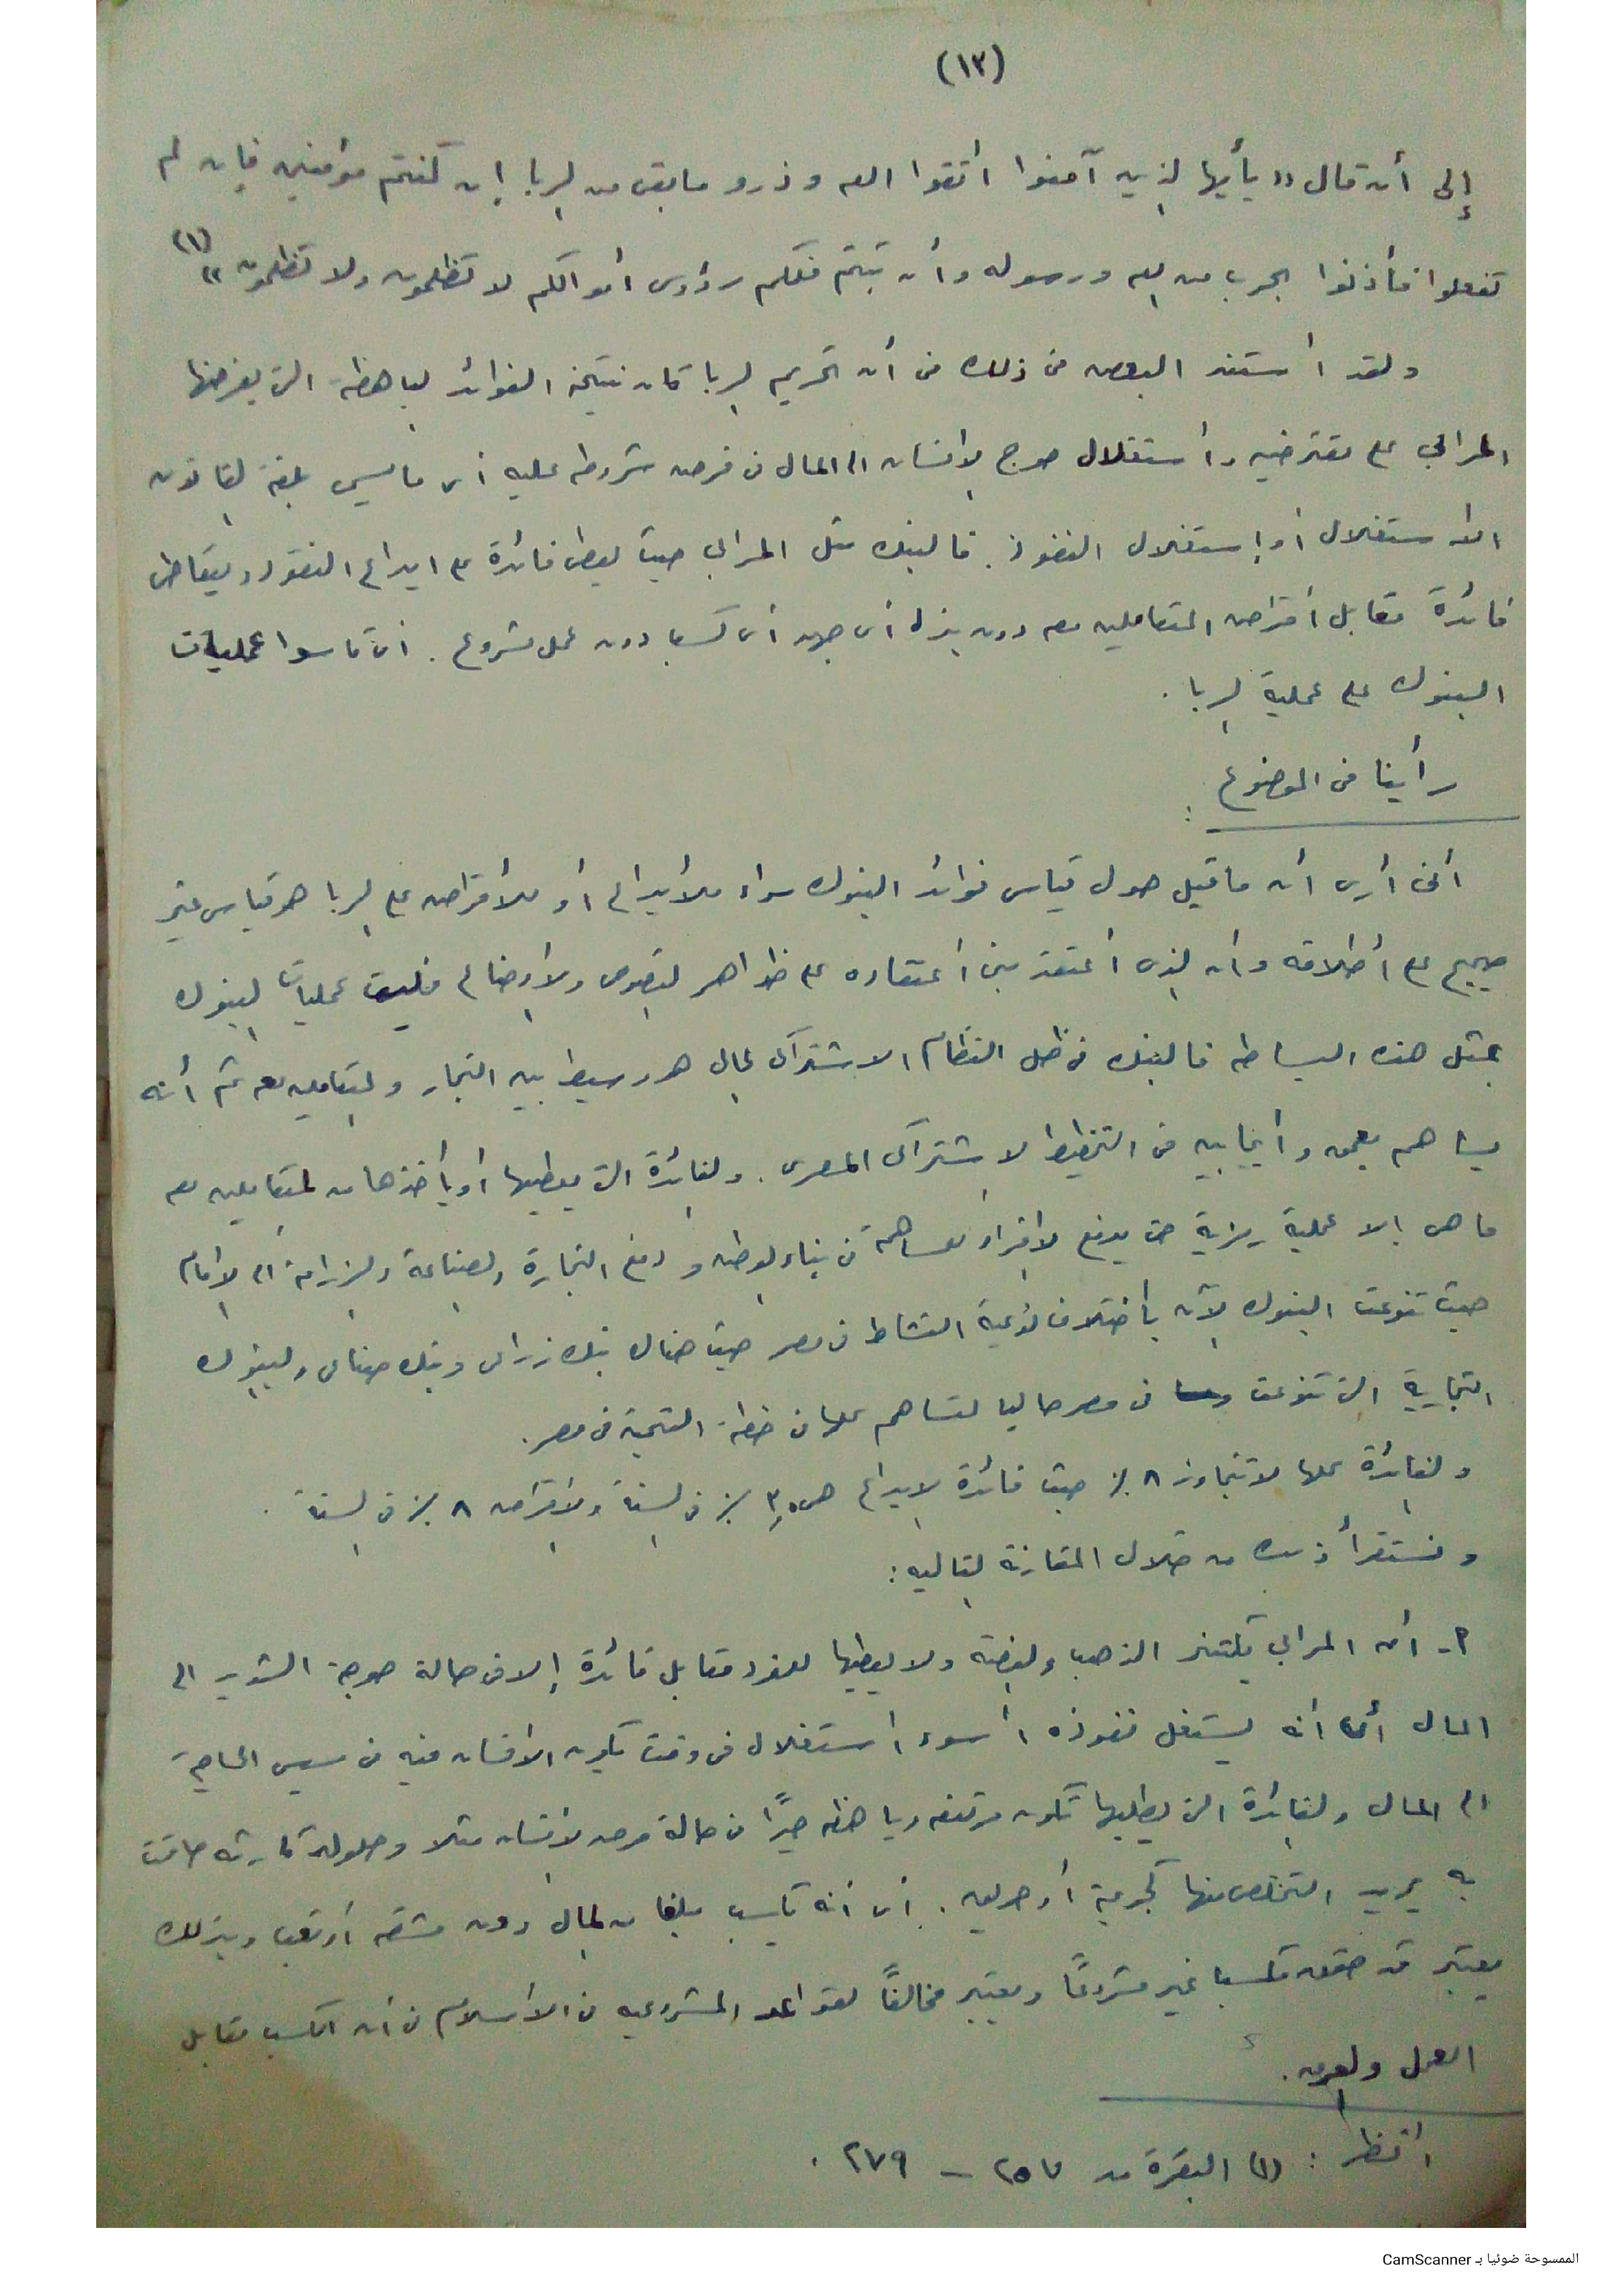 (١٣)
إلى أن قال « يأيها الذين آمنوا أتقوا الله وذرو مابقى من الربا إن كنتم مؤمنين فإن لم
تفعلوا فأذنوا بحرب من الله ورسوله وأن تبتم فلكم رؤوس أموالكم لا تظلمون ولا تظلمون » (١)
ولقد أستند البعض فى ذلك من أن تحريم الربا كان نتيجة الفوائد الباهظة التى يفرضها
المرابي على مقترضيه وأستغلال حوج الإنسان الى المال فى فرض شروطه عليه أى مايسمى بلغة القانون
الاستغلال أو إستغلال النفوذ. فالبنك مثل المرابى حيث يعطى فائدة على ايداع النقود ويتقاضى
فائدة مقابل أقتراض المتعاملين معه دون بذله أى جهد أى كسب دون عمل مشروع. أى قاسوا عمليات
البنوك على عملية الربا.
رأينا فى الموضوع :
أنى أرى أن ماقيل حول قياس فوائد البنوك سواء للأيداع أو للأقتراض على الربا هو قياس غير
صحيح على أطلاقه وأن الذى أعتقد بنى أعتقاده على ظواهر النصوص والأوضاع فليست عمليات البنوك
بمثل هذه البساطه فالبنك فى ظل النظام الاشتراكى لمال هو وسيط بين التجار والمتعاملين معه ثم أنه
يساهم بعمق وأيجابيه فى التخطيط الاشتراكى المصرى. والفائدة التى يعطيها أو يأخذها من المتعاملين معه
ما هى إلا عملية رمزية حتى يدفع الأفراد للمساهمة فى بناء الوطن و دفع التجارة والصناعة والزراعة الى الأمام
حيث تنوعت البنوك الآن بأختلاف نوعية النشاط فى مصر حيث هناك بنك زراعى وبنك صناعى والبنوك
التجارية التى تنوعت فى مصر حاليا لتساهم بمالها فى خطة التنمية فى مصر.
والفائدة عملها لاتتجاوز ٨ ٪ حيث فائدة الايداع هى ٣,٥ ٪ فى السنة والأقتراض ٨ ٪ فى السنة .
ونستقرأ ذلك من خلال المقارنة التاليه :
٢ـ أن المرابى يكتنز الذهب والفضة ولا يعطيها للفرد مقابل فائدة إلا فى حالة حوجة الشديد الى
المال أى أنه يستغل نفوذه أسوء أستغلال فى وقت يكون الانسان فيه فى مسيس الحاجة
الى المال والفائدة التى يطلبها تكون مرتفعه وباهظه جدًا فى حالة مرض الأنسان مثلا وحلول كارثه حاقت
به يريد التخلص منها كجريمة أو حريق. أى أنه يكسب مبلغا من المال دون مشقه أو تعب وبذلك
يعتبر قد حقق كسبا غير مشروعًا ويعتبر مخالفًا لقواعد المشروعيه فى الأسلام فى أن الكسب مقابل
العمل والعرق.
أنظر : (١) البقرة من ٢٥٧ – ٢٧٩ .
الممسوحة ضوئيا بـ CamScanner